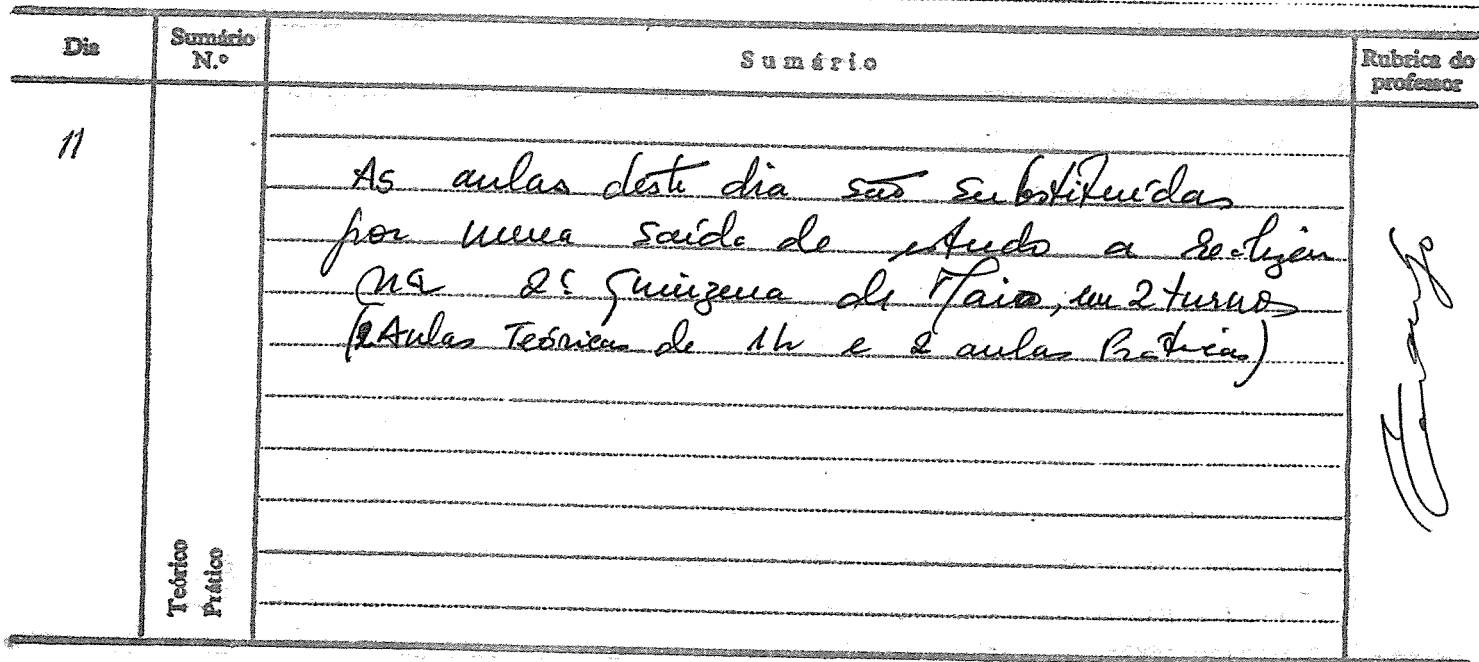 Dia
Sumário N.º
Sumário
Rubrica do professor
11
As aulas deste dia são substituídas
por uma saída de estudo a realizar
na 2ª quinzena de Maio, em 2 turnos
(2 Aulas Teóricas de 1h e 2 aulas Práticas)
Teórico
Prático